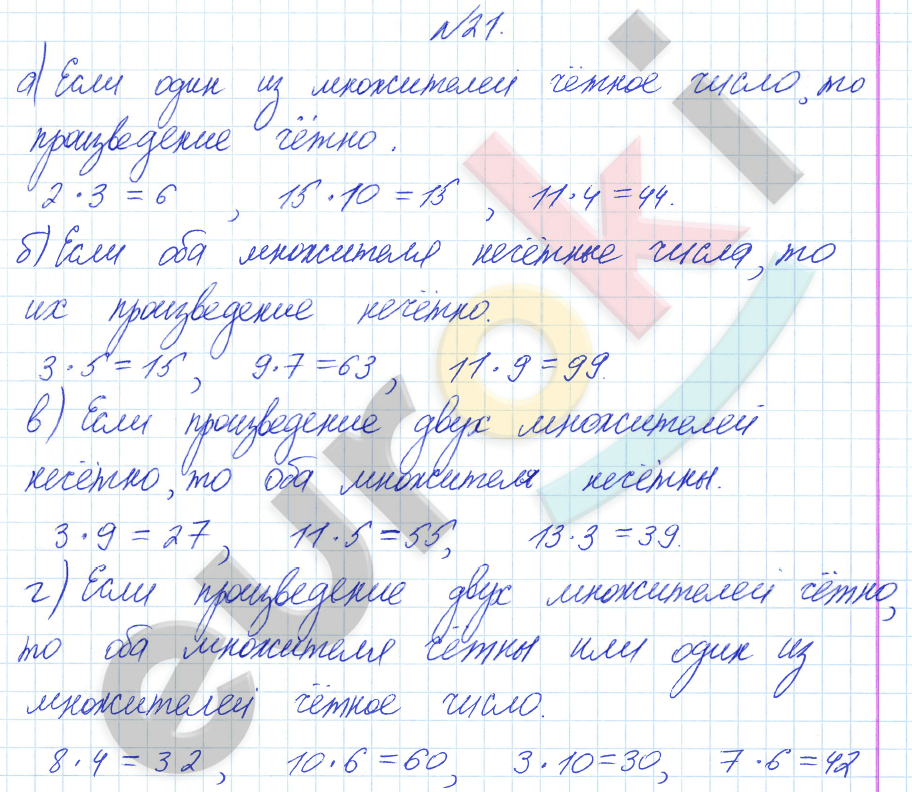 №21.
а) Если один из множителей чётное число, то
произведение чётно.
2·3=6, 15·10=15, 11·4=44.
б) Если оба множителя нечётные числа, то
их произведение нечётно.
3·5=15, 9·7=63, 11·9=99.
в) Если произведение двух множителей
нечётно, то оба множителя нечётны.
3·9=27, 11·5=55, 13·3=39.
г) Если произведение двух множителей чётно,
то оба множителя чётны или один из
множителей чётное число.
8·4=32, 10·6=60, 3·10=30, 7·6=42
euroki